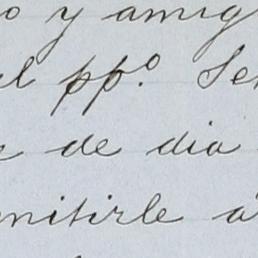 o y amig
el ppº. Se
de dia
mitirle á